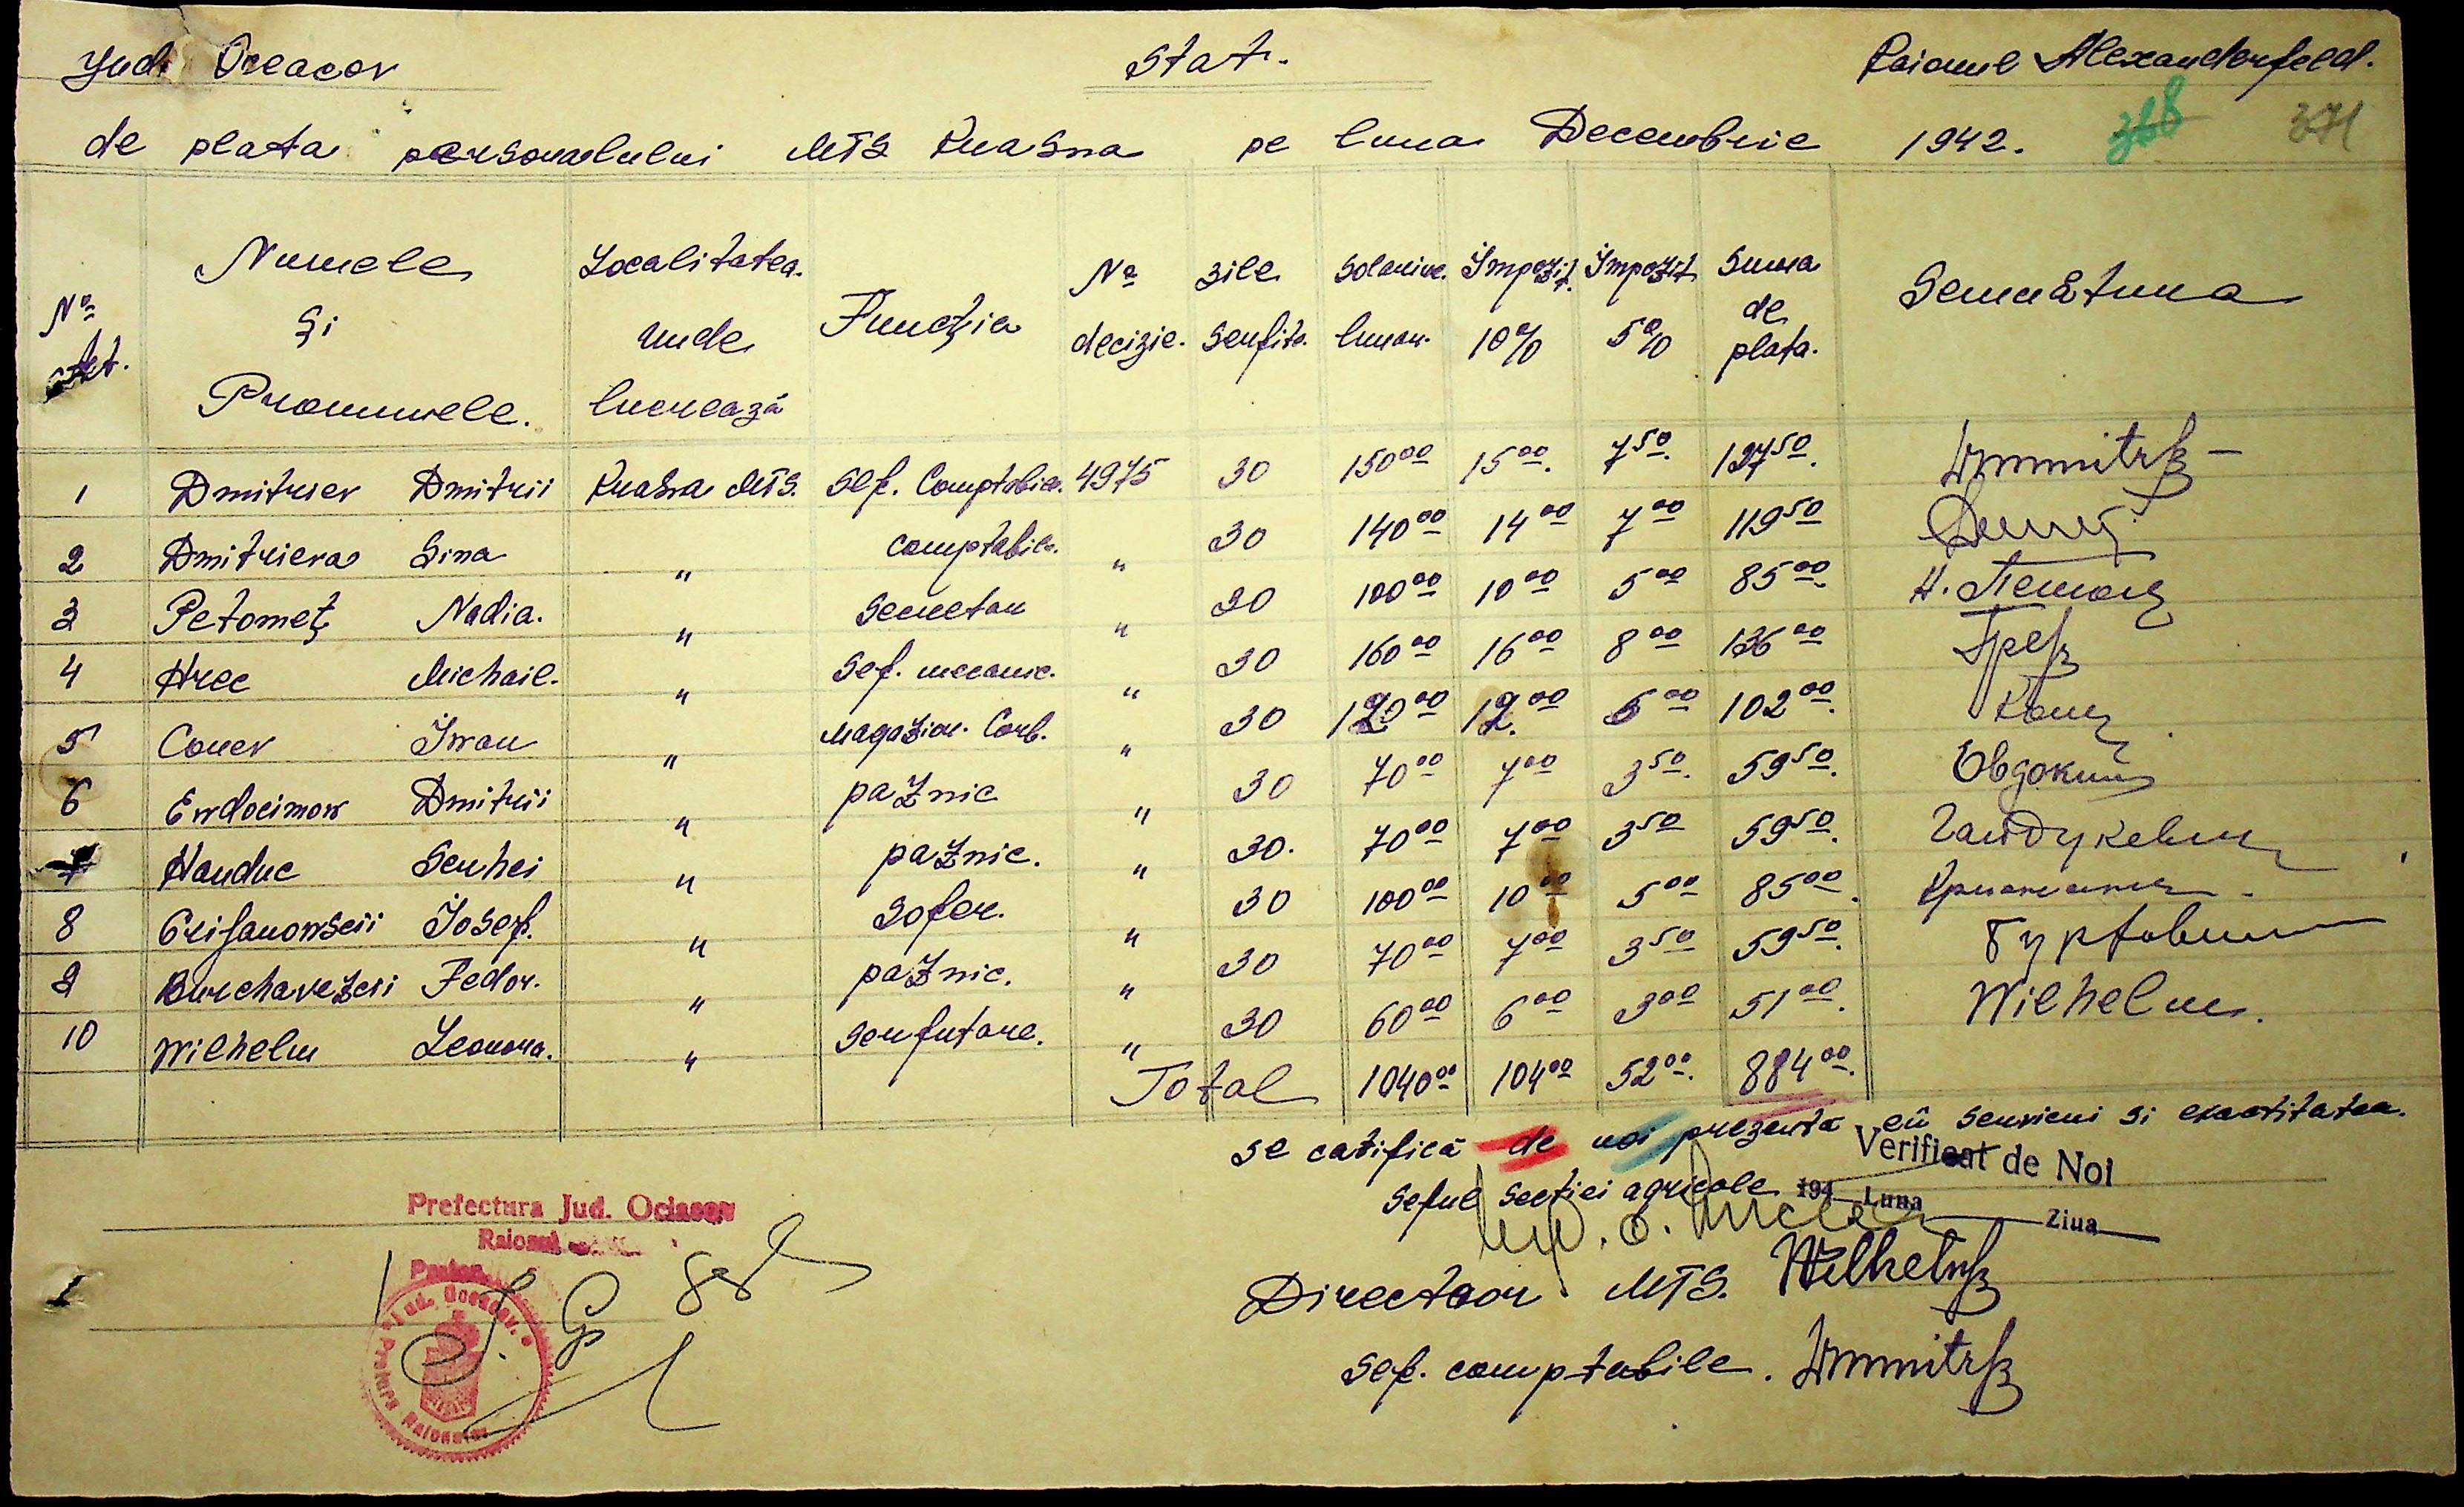 Jud. Oceacov Stat. Raionul Alexanderfeld.
de plata personalului MTS Krasna pe luna Decembrie 1942. 368 371
No crt. Numele și Pronumele. Localitatea unde lucrează Funcția No decizie. zile serfite. Solariu lunar. Impozit. 10% Impozit 5% Suma de plata. Semnătura
1 Dmitriev Dmitrii Krasna MTS. Sef. Comptabil. 4975 30 150 00 15 00. 7 50. 127 50. Dmmitr
2 Dmitrieva Sina " comptabil. " 30 140 00 14 00 7 00 119 50
3 Petomeț Nadia. " Secretar " 30 100 00 10 00 5 00 85 00.
4 Hrec Michail. " Sef. mecanic. " 30 160 00 16 00 8 00 136 00
5 Conev Iwan " magazior. Corb. " 30 120 00 12. 00 6 00 102 00.
6 Ewdocimow Dmitrii " paznic " 30 70 00 7 00 3 50. 59 50. Евдоким
7 Handuc Serhei " paznic. " 30. 70 00 7 00 3 50 59 50.
8 Crijanowscii Iosef. " Sofer. " 30 100 00 10 00 5 00 85 00.
9 Burchavezcii Fedor. " paznic. " 30 70 00 7 00 3 50 59 50.
10 Wilhelm Leonora. " Serfutore. " 30 60 00 6 00 3 00 51 00. Wilhelm.
Total 1040 00 104 00 52 00. 884 00.
se catifică de noi prezenta cu servicui si exactitatea.
Verificat de Noi
Seful Sectiei agricole
194 Luna Ziua
Prefectura Jud. Ociacov
Raionul
Pretor,
Jud. Oceacov.
Pretura Raionului
Directoor MTS. Wilhelm
Sef. comptabile. Dmmitr